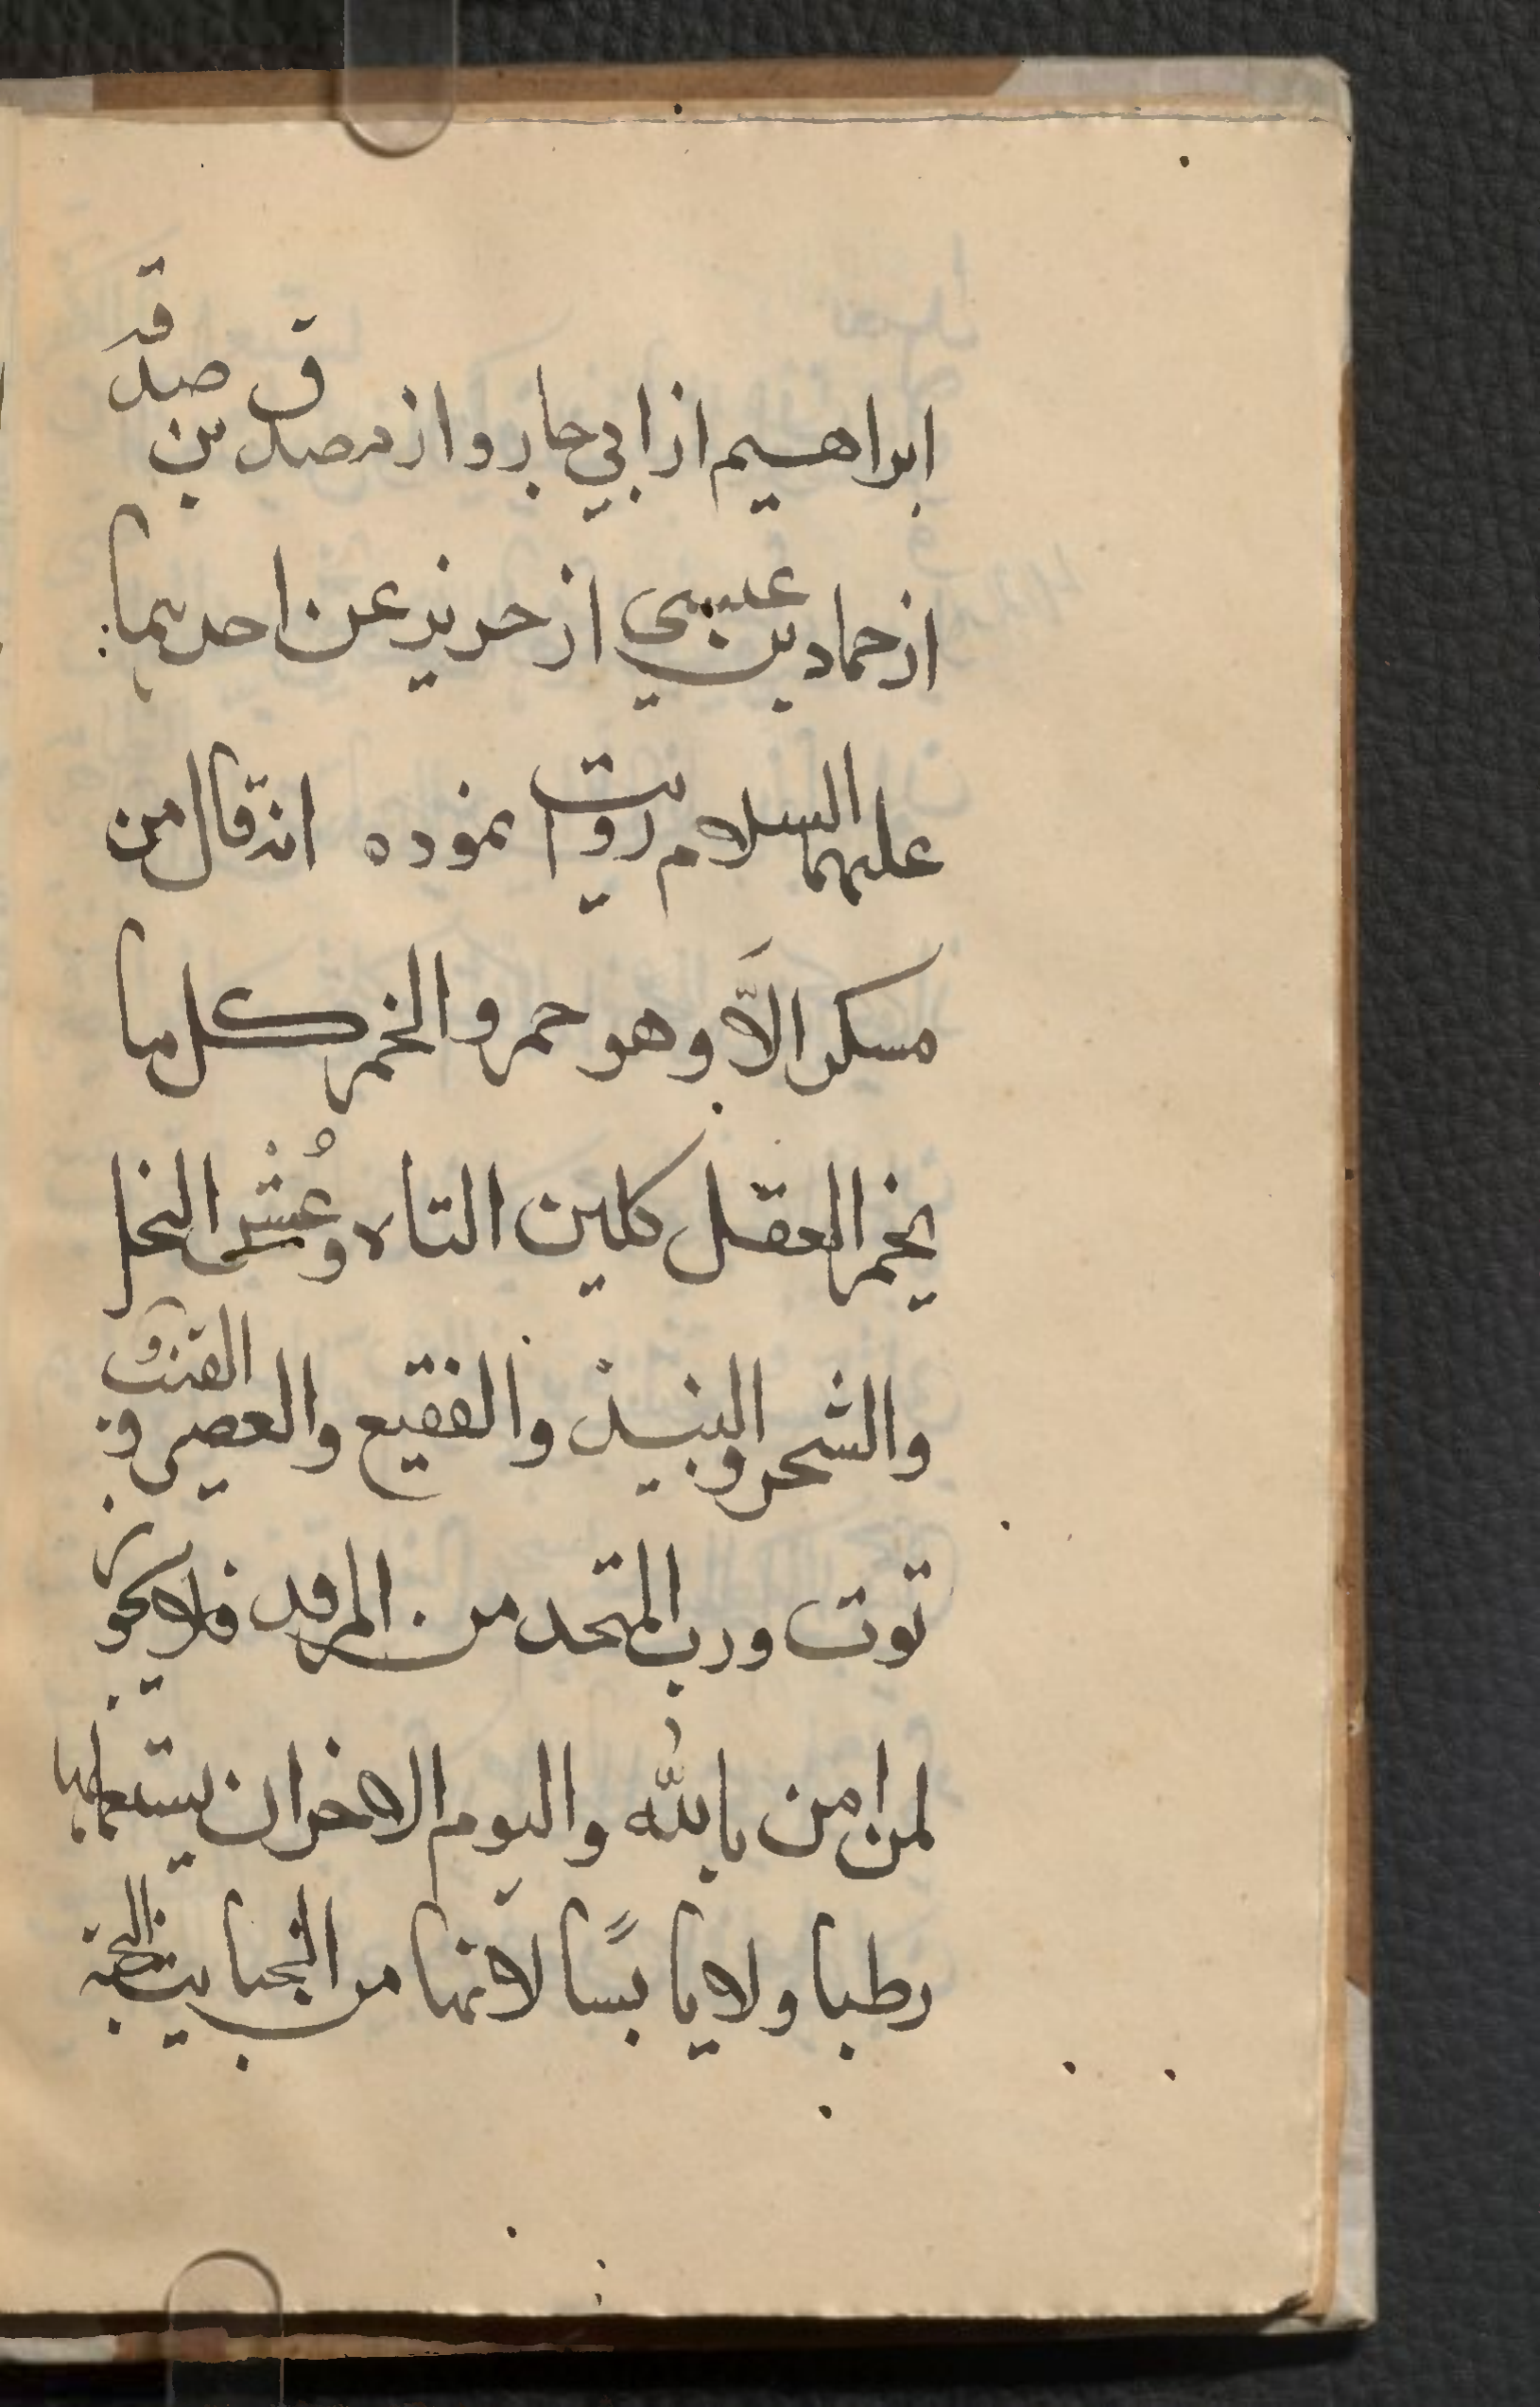 ابراهیم از ابی جارو از مصدق بن صدقه
از حماد بن عیسی از حریز عن احدیهما
علیهما السلام روایت نموده انه قال من
مسکر الاّ وهو خمر والخمر کل ما
یخمر العقل کلبن التاه وعُشر النحل
والشحر والنبیذ والفقیع والعصیر و القنب و
توت ورب المتحد من المرقد فلا یجوز
لمن امن بالله والیوم الاخر ان یستعملها
رطبا ولا یابسًا لانها من الخبایث